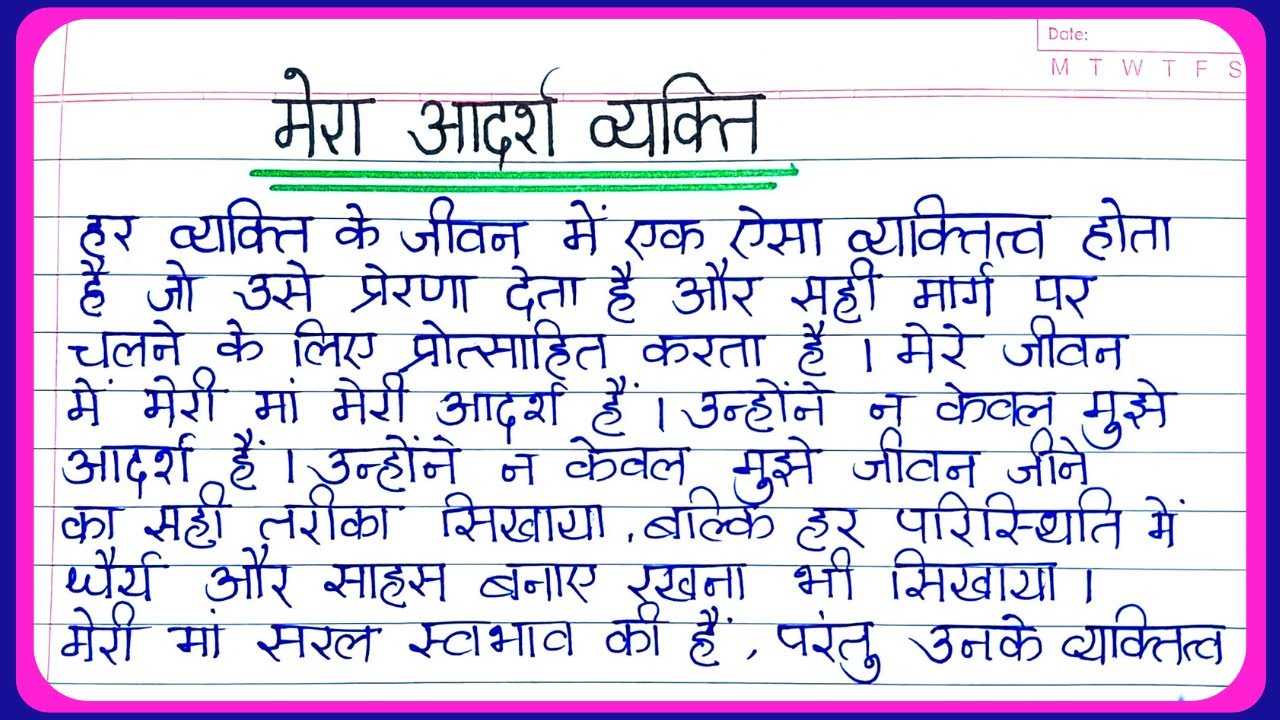 Date:
M T W T F S
मेरा आदर्श व्यक्ति
हर व्यक्ति के जीवन में एक ऐसा व्यक्तित्व होता
है जो उसे प्रेरणा देता है और सही मार्ग पर
चलने के लिए प्रोत्साहित करता है । मेरे जीवन
में मेरी मां मेरी आदर्श हैं । उन्होंने न केवल मुझे
आदर्श हैं । उन्होंने न केवल मुझे जीवन जीने
का सही तरीका सिखाया, बल्कि हर परिस्थिति में
धैर्य और साहस बनाए रखना भी सिखाया ।
मेरी मां सरल स्वभाव की हैं, परंतु उनके व्यक्तित्व